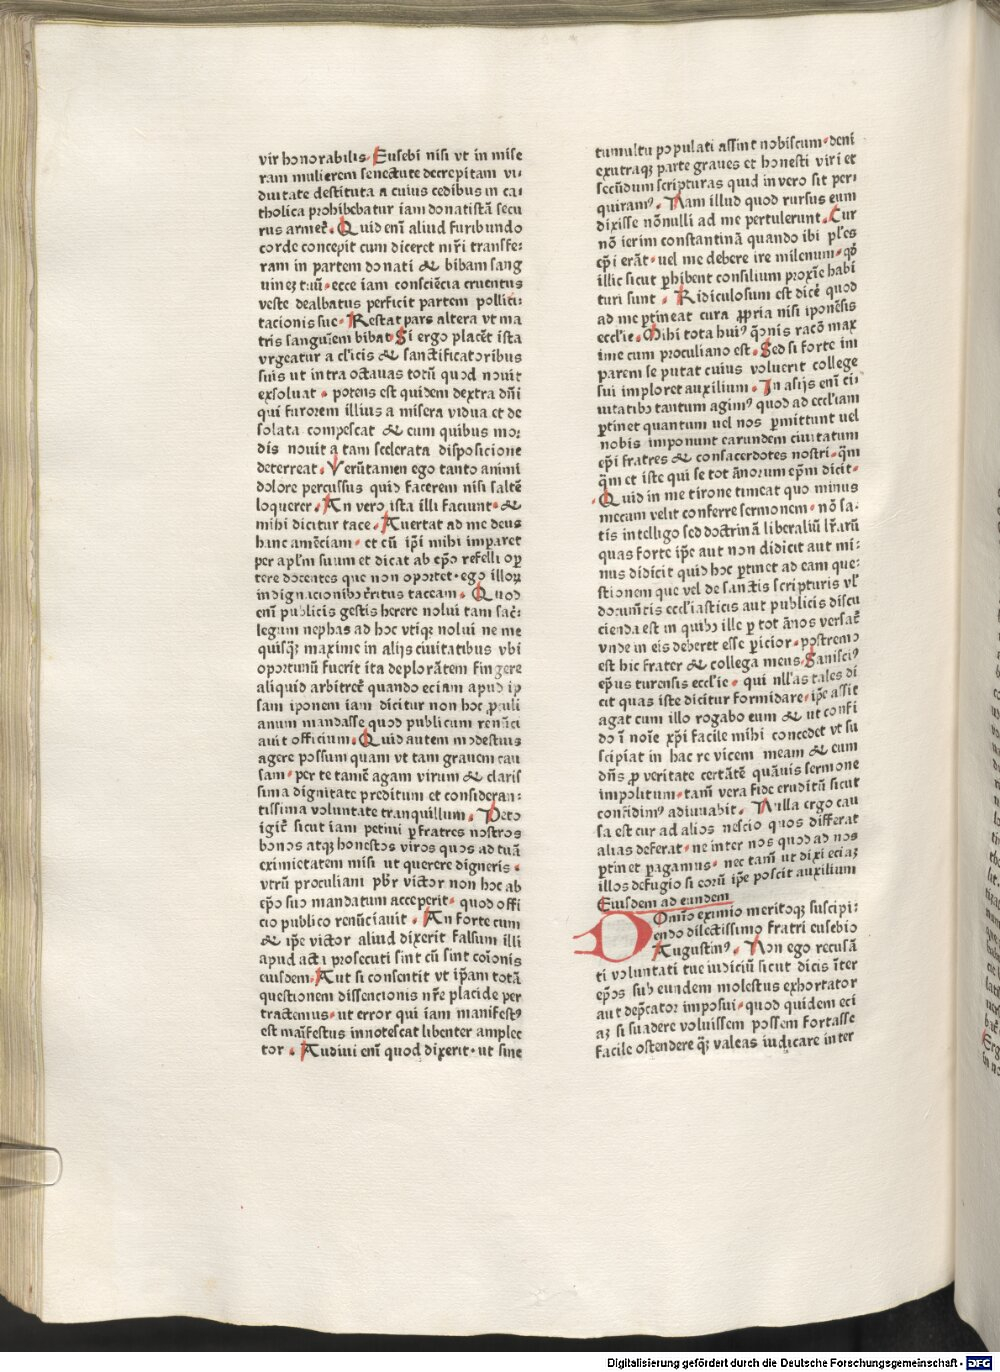 vir honorabilis. Eusebi nisi vt in mise
ram mulierem senectute decrepitam vi
duitate destituta a cuius cedibus in ca
tholica prohibebatur iam donatistā secu
rus armet̄. Quid enī aliud furibundo
corde concepit cum diceret mr̄i transfe:
ram in partem donati & bibam sang
uinez tuū. ecce iam consciēcia cruentus
veste dealbatus perficit partem pollici:
tacionis sue. Restat pars altera vt ma
tris sanguiem bibat. Si ergo placēt ista
vrgeatur a cl'icis & sanctificatoribus
suis ut intra octauas totū quod nouit
exsoluat. potens est quidem dextra dn̄i
qui furorem illius a misera vidua et de
solata compescat & cum quibus mo:
dis nouit a tam scelerata disposicione
deterreat. Verūtamen ego tanto animi
dolore percussus quid facerem nisi saltē
loquerer. An vero ista illi faciunt. &
mihi dicitur tace. Auertat ad me deus
hanc amēciam. et cū ip̄i mihi imparet
per apl̄m suum et dicat ab ep̄o refelli opꝛ
tere docentes que non oportet. ego illoꝝ
indignacionibꝰ t̄ritus taceam. Quod
enī publicis gestis herere nolui tam sac̄:
legum nephas ad hoc vtiqꝫ nolui ne me
quisqꝫ maxime in alijs ciuitatibus vbi
oportunū fuerit ita deplorātem fingere
aliquid arbitret̄ quando eciam apud ip
sam iponem iam dicitur non hoc pauli
anum mandasse quod publicum renūci
auit officium. Quid autem modestius
agere possum quam vt tam grauem cau
sam. per te tamē agam virum & claris
sima dignitate preditum et consideran:
tissima voluntate tranquillum. Peto
igit̄ sicut iam petini ꝑ fratres nostros
bonos atqꝫ honestos viros quos ad tuā
eximietatem misi ut querere digneris.
vtrū proculiani pb̄r victor non hoc ab
ep̄o suo mandatum acceperit. quod offi
cio publico renūciauit. An forte cum
& ip̄e victor aliud dixerit falsum illi
apud acta prosecuti sint cū sint cōionis
eiusdem. Aut si consentit vt ip̄am totā
questionem dissencionis nr̄e placide per
tractemus. ut error qui iam manifestꝰ
est māifestus innotescat libenter amplec
tor. Audiui enī quod dixerit. ut sine
tumultu populati assint nobiscum. deni
ex utraqꝫ parte graues et honesti viri et
secūdum scripturas quid in vero sit per:
quiramꝰ. Nam illud quod rursus eum
dixisse nōnulli ad me pertulerunt. Cur
nō ierim constantinā quando ibi pl'es
ep̄i erāt. uel me debere ire milenum. qꝺ
illic sicut ꝑhibent consilium proxīe habi
turi sunt. Ridiculosum est dicē quod
ad me ꝑtineat cura ꝓpria nisi iponēsis
eccl'ie. Mihi tota huiꝰ q̄onis racō max
ime cum proculiano est. Sed si forte im
parem se putat cuius voluerit college
sui imploret auxilium. In alijs enī ci:
uitatibꝰ tantum agimꝰ quod ad eccl'iam
ꝑtinet quantum uel nos ꝑmittunt uel
nobis imponunt earundem ciuitatum
ep̄i fratres & consacerdotes nostri. q̄m
q̄m et iste qui se tot ānorum ep̄m dicit.
Quid in me tirone timeat quo minus
mecum velit conferre sermonem. nō sa:
tis intelligo sed doctrinā liberaliū lr̄arū
quas forte ip̄e aut non didicit aut mi:
nus didicit quid hoc ꝑtinet ad eam que:
stionem que vel de sanctis scripturis vl'
documētis eccl'iasticis aut publicis discu
cienda est in quibꝰ ille ꝑ tot ānos versat̄
vnde in eis deberet esse ꝑicior. postremo
est hic frater & collega meus. Sansciꝰ
ep̄us turensis eccl'ie. qui nll'as tales di
cit quas iste dicitur formidare. ip̄e assit
agat cum illo rogabo eum & ut confi
do ī noīe xp̄i facile mihi concedet vt su
scipiat in hac re vicem meam & eum
dn̄s ꝓ veritate certātē quāuis sermone
impolitum. tam̄ vera fide eruditū sicut
confidimꝰ adiuuabit. Nulla ergo cau
sa est cur ad alios nescio quos differat
alias deferat. ne inter nos quod ad nos
ꝑtinet ꝑagamus. nec tam̄ ut dixi eciaꝫ
illos defugio si eorū ip̄e poscit auxilium
Eiusdem ad eundem
Domīo eximio meritoqꝫ suscipi:
endo dilectissimo fratri eusebio
Augustinꝰ. Non ego recusā
ti voluntati tue iudiciū sicut dicis īter
ep̄os sub eundem molestus exhortator
aut dep̄cator imposui. quod quidem eci
aꝫ si suadere voluissem possem fortasse
facile ostendere q̄ꝫ valeas iudicare inter
Digitalisierung gefördert durch die Deutsche Forschungsgemeinschaft - DFG